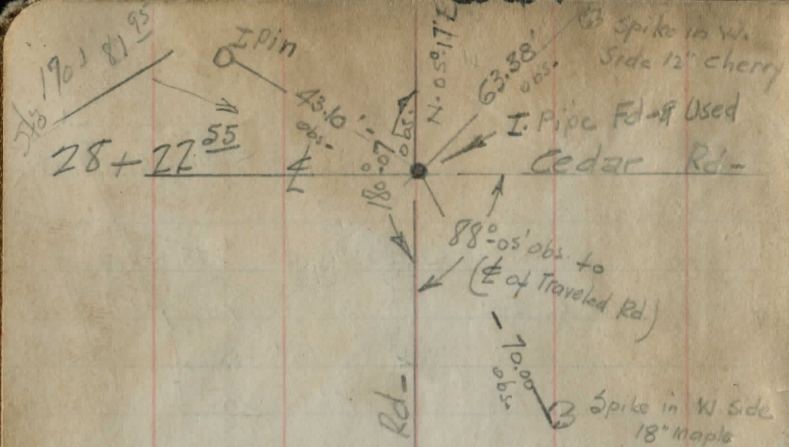 Sta 170+81.95
I Pin
43.10' obs.
28+22.55
℄
180°-07' obs.
N. 05°17'E
63.38' obs.
Spike in W.
Side 12" Cherry
I. Pipe Fd-& Used
Cedar Rd-
88°-05' obs. to
(℄ of Traveled Rd.)
70.00 obs.
Rd-
Spike in W side
18" maple